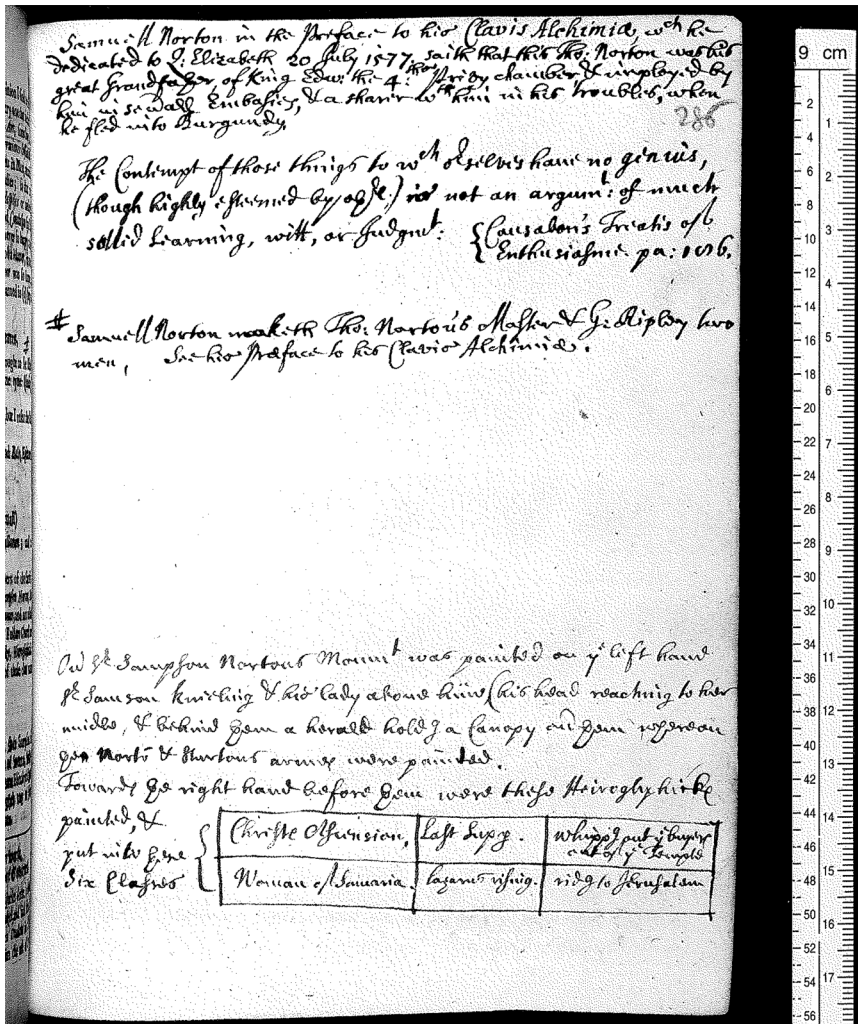 Samuell Norton in the Preface to his Clavis Alchimiæ, wch he
dedicated to Q: Elizabeth 20 July 1577, saith that this Tho: Norton was his
great Grandfather, of King Edw: the 4: thes Privy chamber & imployed by
him in sevall Embasies, & a sharer wth him in his troubles, when
he fled into Burgundy.
286
The Contempt of those things to wch orselves have no genius,
(though highly esteemed by others) is not an argumt: of much
sollid Learning, witt, or Judgmt:
{Causabon's Treatis of
Enthusiasme. pa:
# Samuell Norton maketh Tho: Nortons Master & G: Ripley two
men, See his Præface to his Clavis Alchimiæ.
On Sr Sampson Nortons Mounmt was painted on ye left hand
Sr Samson kneeling & his lady above him (his head reaching to her
midle, & behind them a herald holdg a Canopy over them whereon
the Norto & Nurtons armes were painted.
Towards the right hand before them were these Heiroglyphicks
painted, &
put into these
six Classes
{ Christs Assension, | last Supp. | whippg out ye buyers
out of ye Temple
Woman of Samaria. | lazarus rising. | ridg to Jerusalem
9 cm
2
4
6
8
10
12
14
16
18
20
22
24
26
28
30
32
34
36
38
40
42
44
46
48
50
52
54
56
1
2
3
4
5
6
7
8
9
10
11
12
13
14
15
16
17